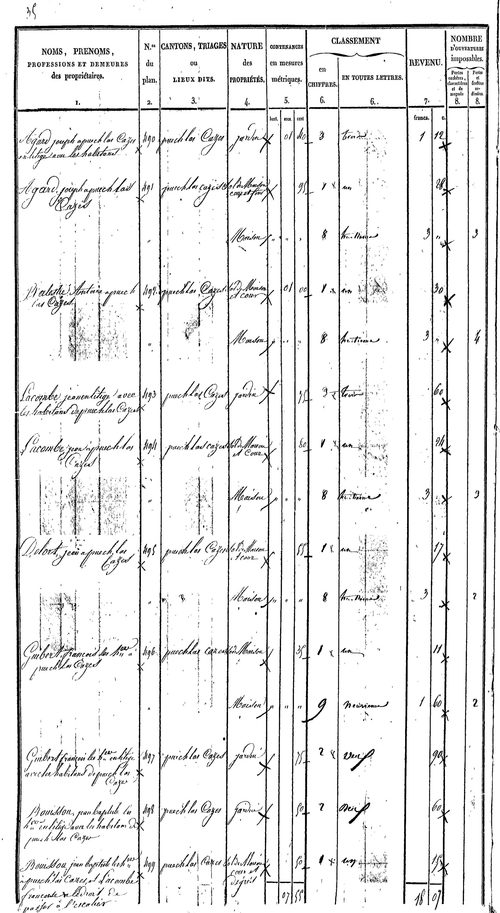 35
NOMS, PRENOMS,
PROFESSIONS ET DEMEURES
des propriétaires.
N.os
du
plan.
CANTONS, TRIAGES
ou
LIEUX DITS.
NATURE
des
PROPRIÉTÉS.
CONTENANCES
en mesures
métriques.
CLASSEMENT
en
CHIFFRES.
EN TOUTES LETTRES.
REVENU.
NOMBRE
D'OUVERTURES
imposables.
1. 2. 3. 4. 5. 6. 6. 7. 8. 8.
francs. c.
Agard joseph a puech las Cazes 490 puech las Cazes jardin 01 40 3 trois 1 12
en litige avec les habitans
Agard, joseph a puech las 491 puech las cazes sol de Maison 95 1 un 28
Cazes
Maison 8 huitieme 3 3
Antoine a puech 492 puech las Cazes sol de Maison 01 00 1 un 30
las Cazes et cour
Maison 8 huitieme 3 4
Lacombe jean en litige avec 493 puech las Cazes jardin 75 3 trois 60
les habitans de puech las Cazes
Lacombe jean a puech las 494 puech las cazes sol de Maison 80 1 un 24
Cazes et Cour
Maison 8 huitieme 3 3
Delort, jean a puech las 495 puech las Cazes sol de Maison 55 1 un 17
Cazes et cour
Maison 8 huitieme 3 2
Guibert francois les h.ers a 496 puech las cazes sol de Maison 35 1 un 11
puech las Cazes
Maison 9 neuvieme 1 60 2
Guibert francois les h.ers en litige 497 puech las Cazes jardin 75 2 deux 90
avec les habitans de puech las
Caze
Bouisson, jean baptiste les 498 puech las Cazes jardin 50 2 deux 60
h.ers en litige avec les habitans de
puech las Cazes
Bouisson jean baptiste les h.ers 499 puech las Cazes sol de Maison 50 1 un 15
a puech las Cazes et Lacombe cour et
francois droit de degrés
passer à l'escalier
07 55 18 07